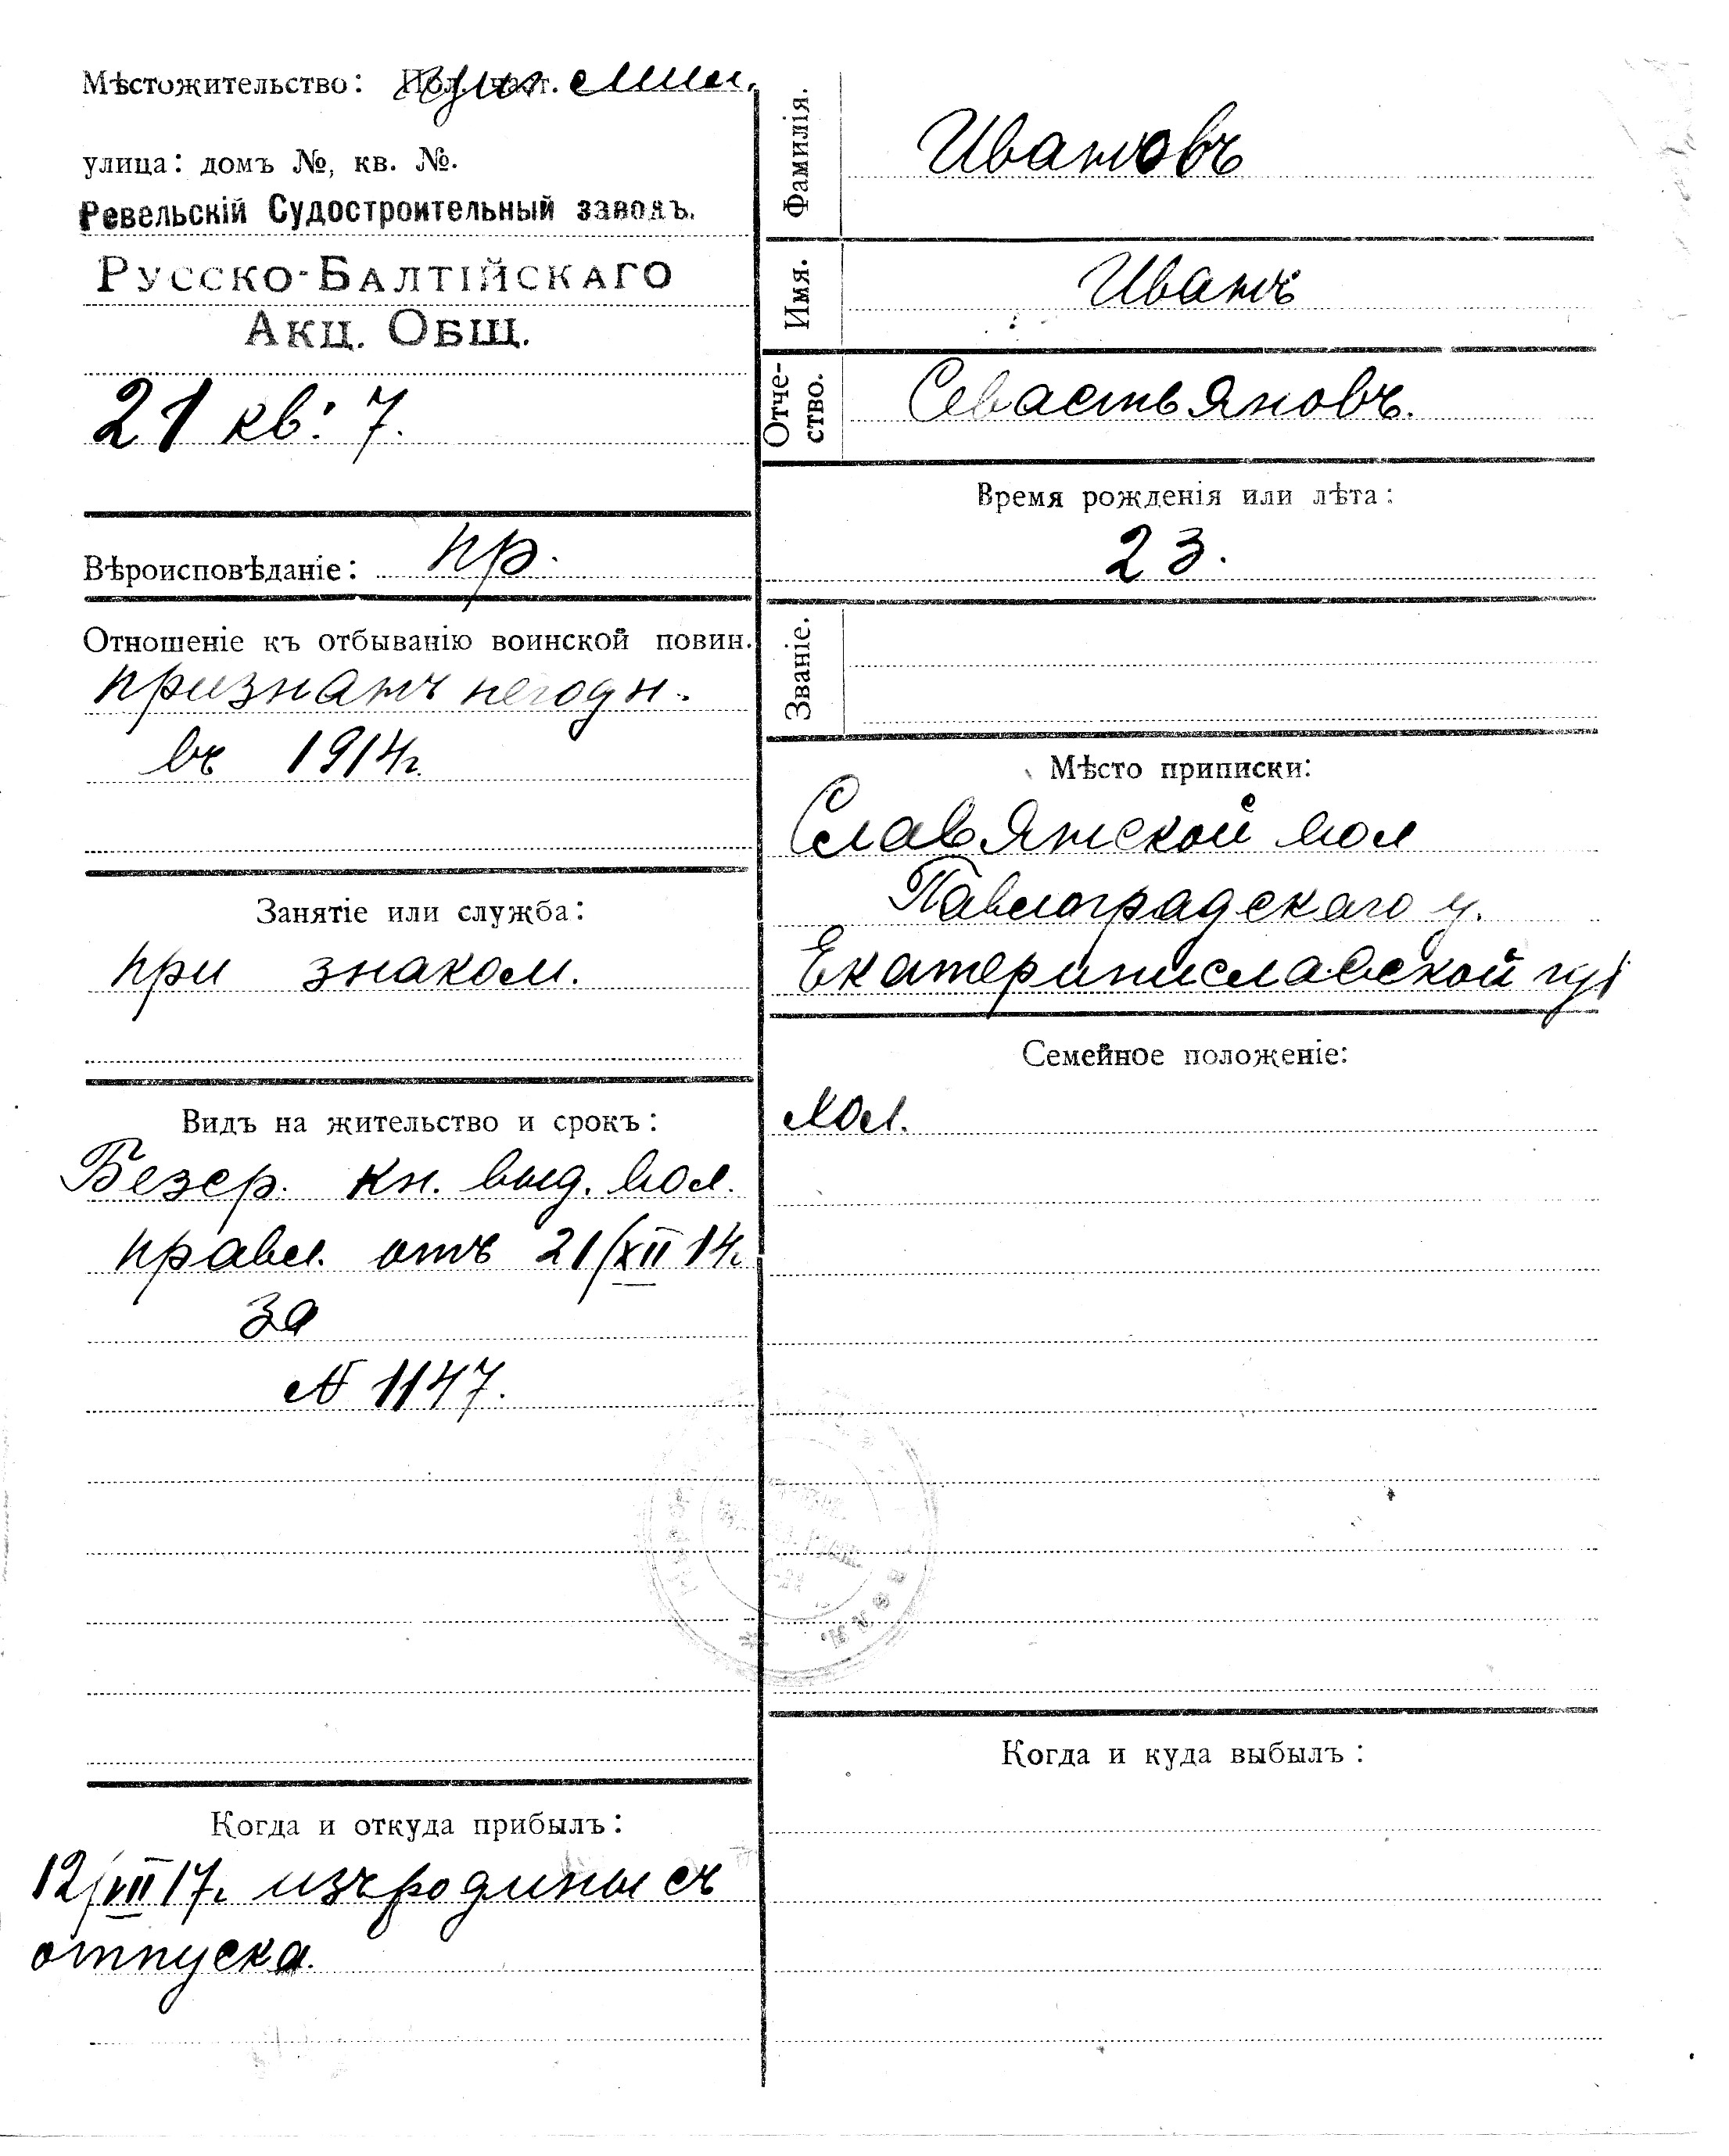 Мѣстожительство:
улица: домъ №, кв. №.
Ревельскій Судостроительный заводъ.
Русско-Балтійскаго
Акц. Общ.
21 кв: 7.
Вѣроисповѣданіе: пр.
Отношеніе къ отбыванію воинской повин.
признанъ негодн.
въ 1914г.
Занятіе или служба:
при знаком.
Видъ на жительство и срокъ:
Безср. кн. выд. вол.
правл. отъ 21/XII 14г.
за
№ 1147.
Когда и откуда прибылъ:
12/VII 17г. изъ родины съ
отпуска.
Фамилія. Ивановъ
Имя. Иванъ
Отче-
ство. Севастьяновъ.
Время рожденія или лѣта:
23.
Званіе.
Мѣсто приписки:
Славянской вол
Павлоградскаго у.
Екатеринославской губ
Семейное положеніе:
хол.
Когда и куда выбылъ: